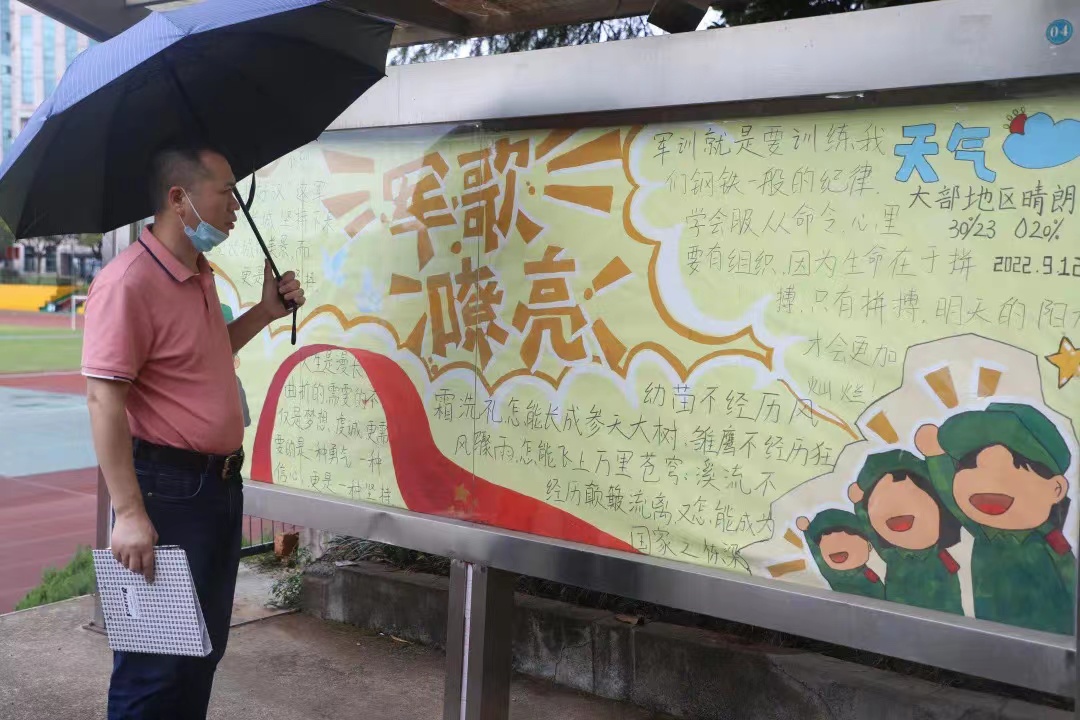 04
军歌
嘹亮
军训就是要训练我
们钢铁一般的纪律.
学会服从命令,心里
要有组织,因为生命在于拼
搏,只有拼搏,明天的阳
才会更加
灿烂!
天气
大部地区晴朗
30/23 20%
2022.9.12
人生是漫长
曲折的需要的不
仅是梦想,虔诚更需
要的是一种勇气一种
信心,更是一种坚持
幼苗不经历风
霜洗礼怎能长成参天大树;雏鹰不经历狂
风骤雨,怎能飞上万里苍穹;溪流不
经历颠簸流离又怎能成为
国家之